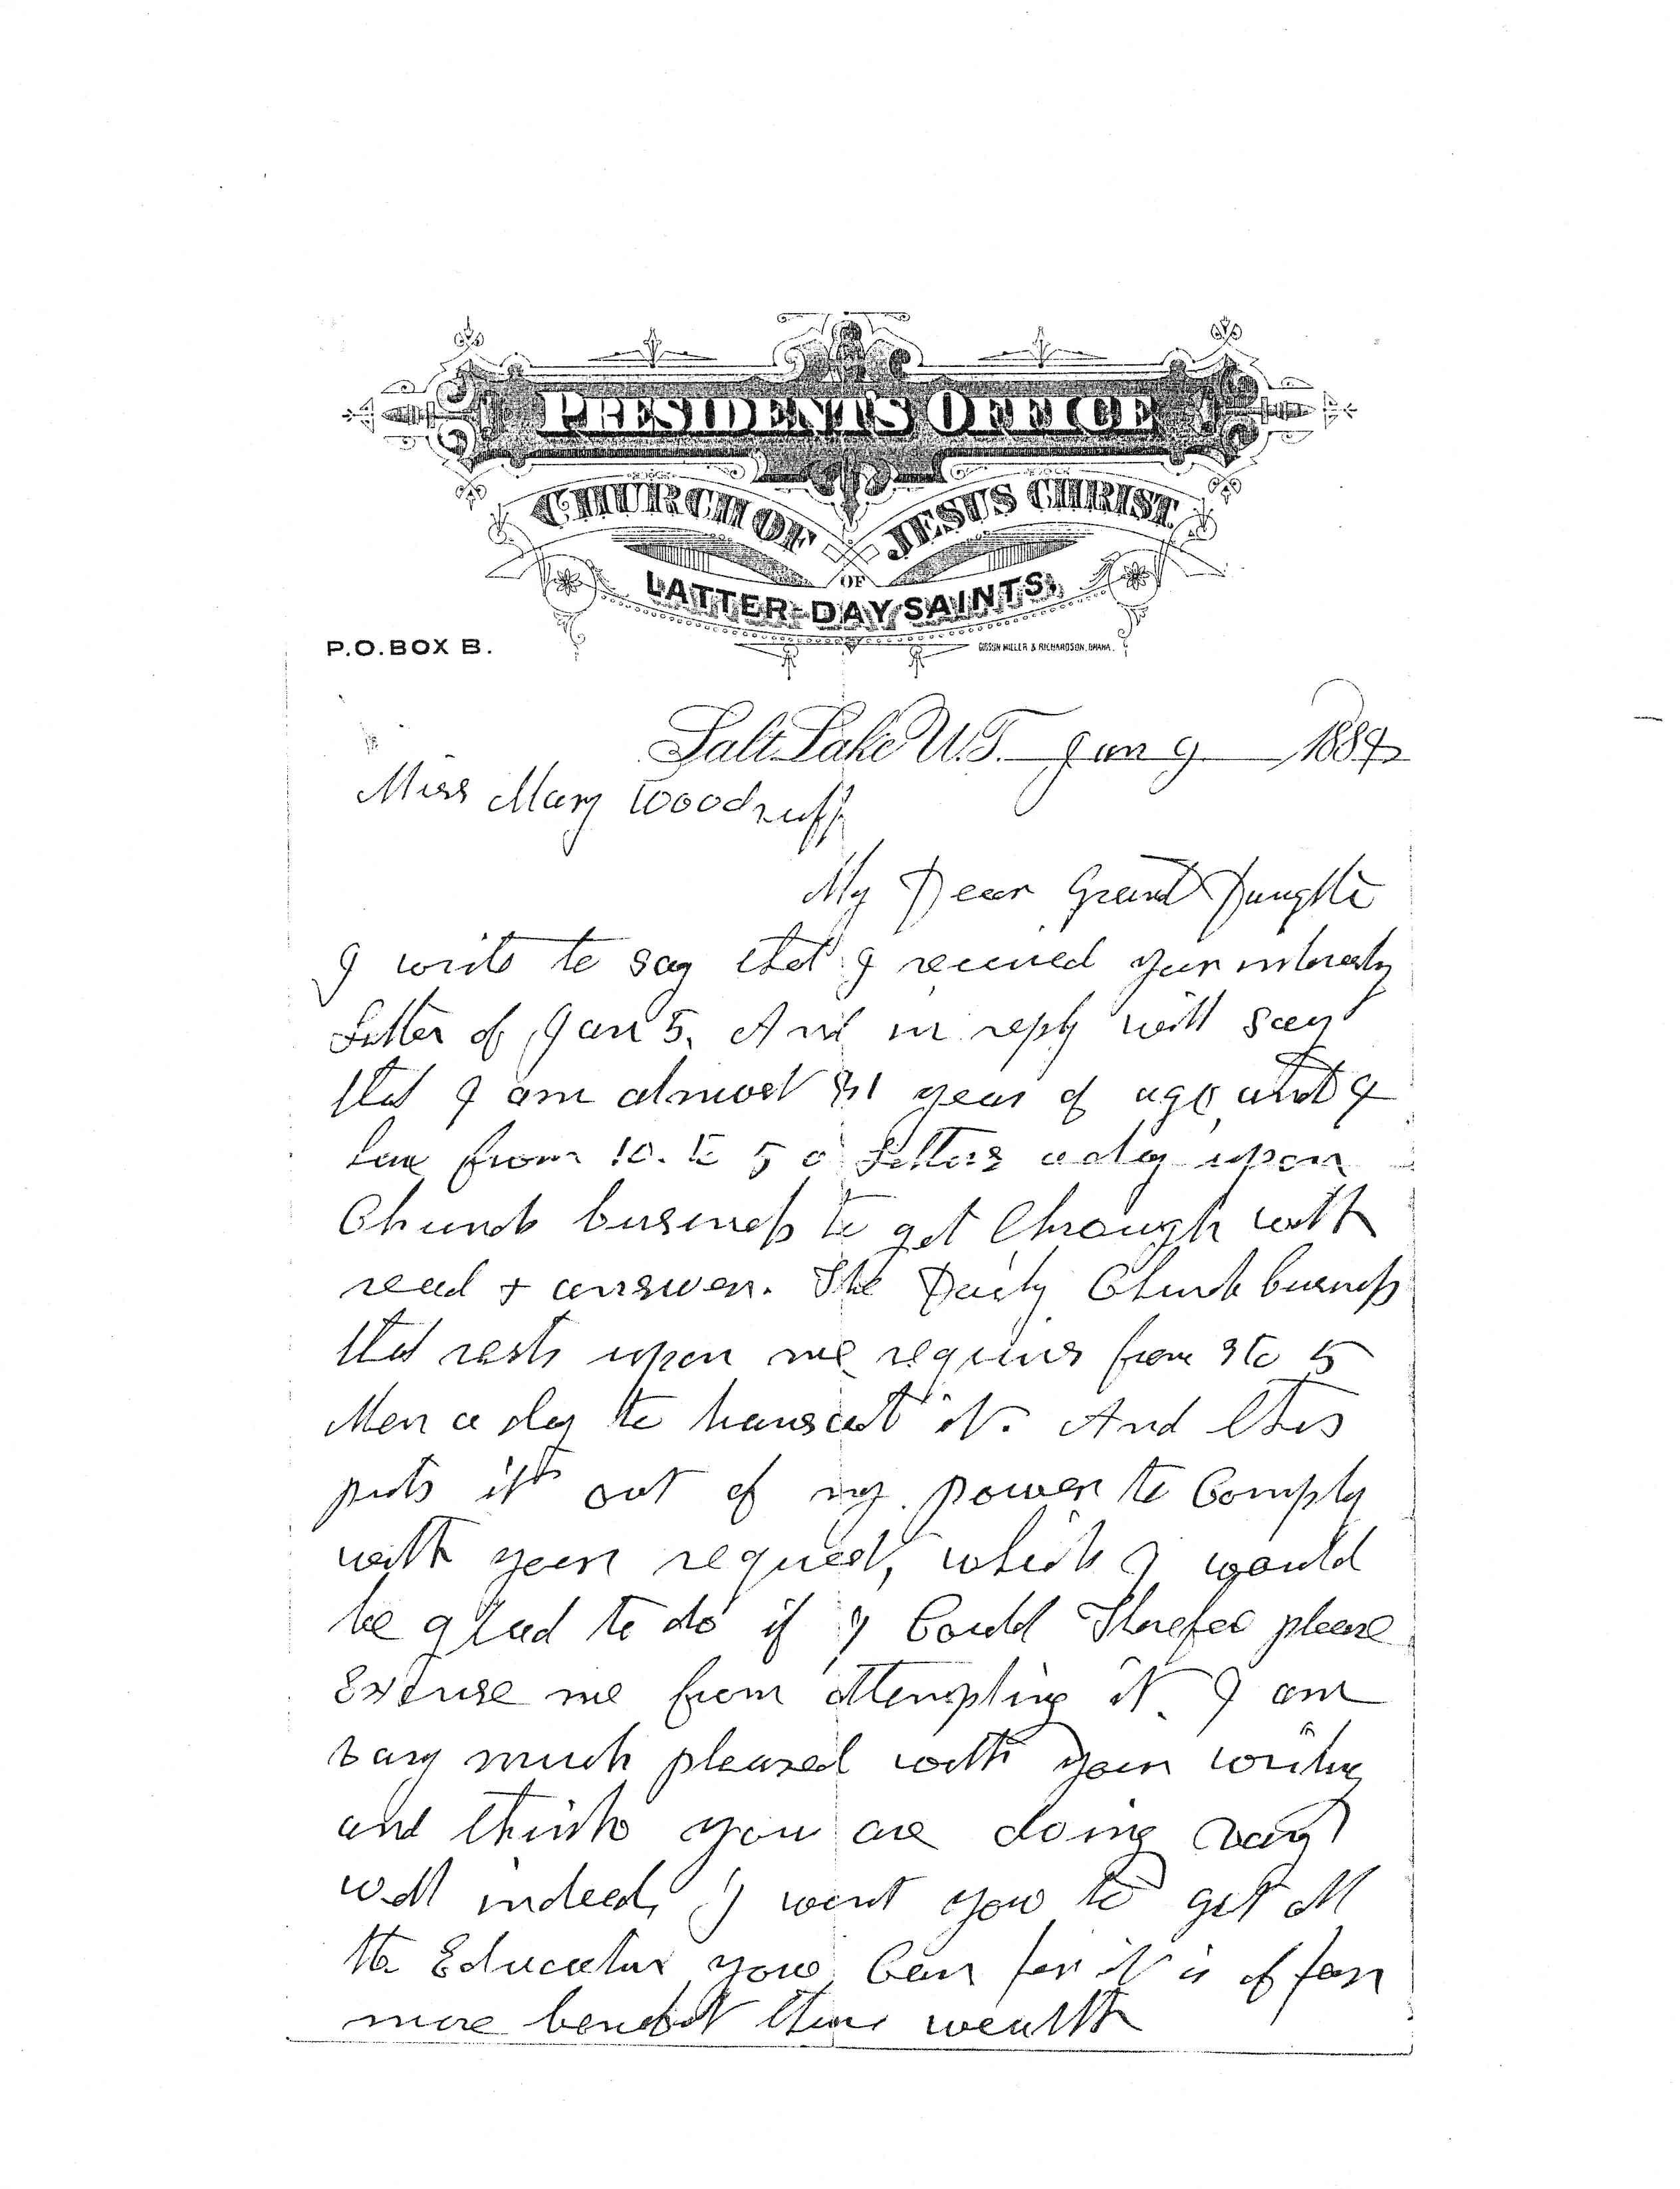 PRESIDENT'S OFFICE
CHURCH OF JESUS CHRIST
OF
LATTER-DAY SAINTS,
P.O. BOX B.
Salt Lake U.T. Jan 9 188
Miss Mary Woodruff
My Dear Grand Daughte
I write to say that I received your
Letter of Jan 5. And in reply will say
that I am almost 81 years of age and I
have from 10. to 50 Letters a day upon
Church business to get through with
read & answer. The Daily Church business
that rests upon me requires from 3 to 5
Men a day to transact it. And this
puts it out of my power to Comply
with your request, which I would
be glad to do if I Could Therefor please
Excuse me from attempting it I am
vary much pleased with your writing
and think you are doing vary
well indeed, I want you to get all
the Education you Can for it is of far
more benefit than wealth